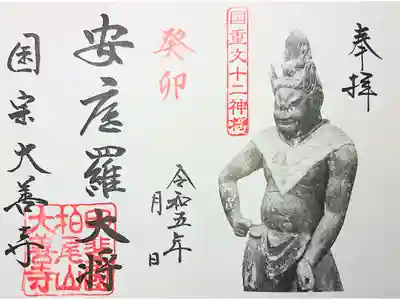 奉拝
国重文十二神将
癸卯
令和五年
月 日
安底羅大将
国宝大善寺
甲斐国
柏尾山
大善寺